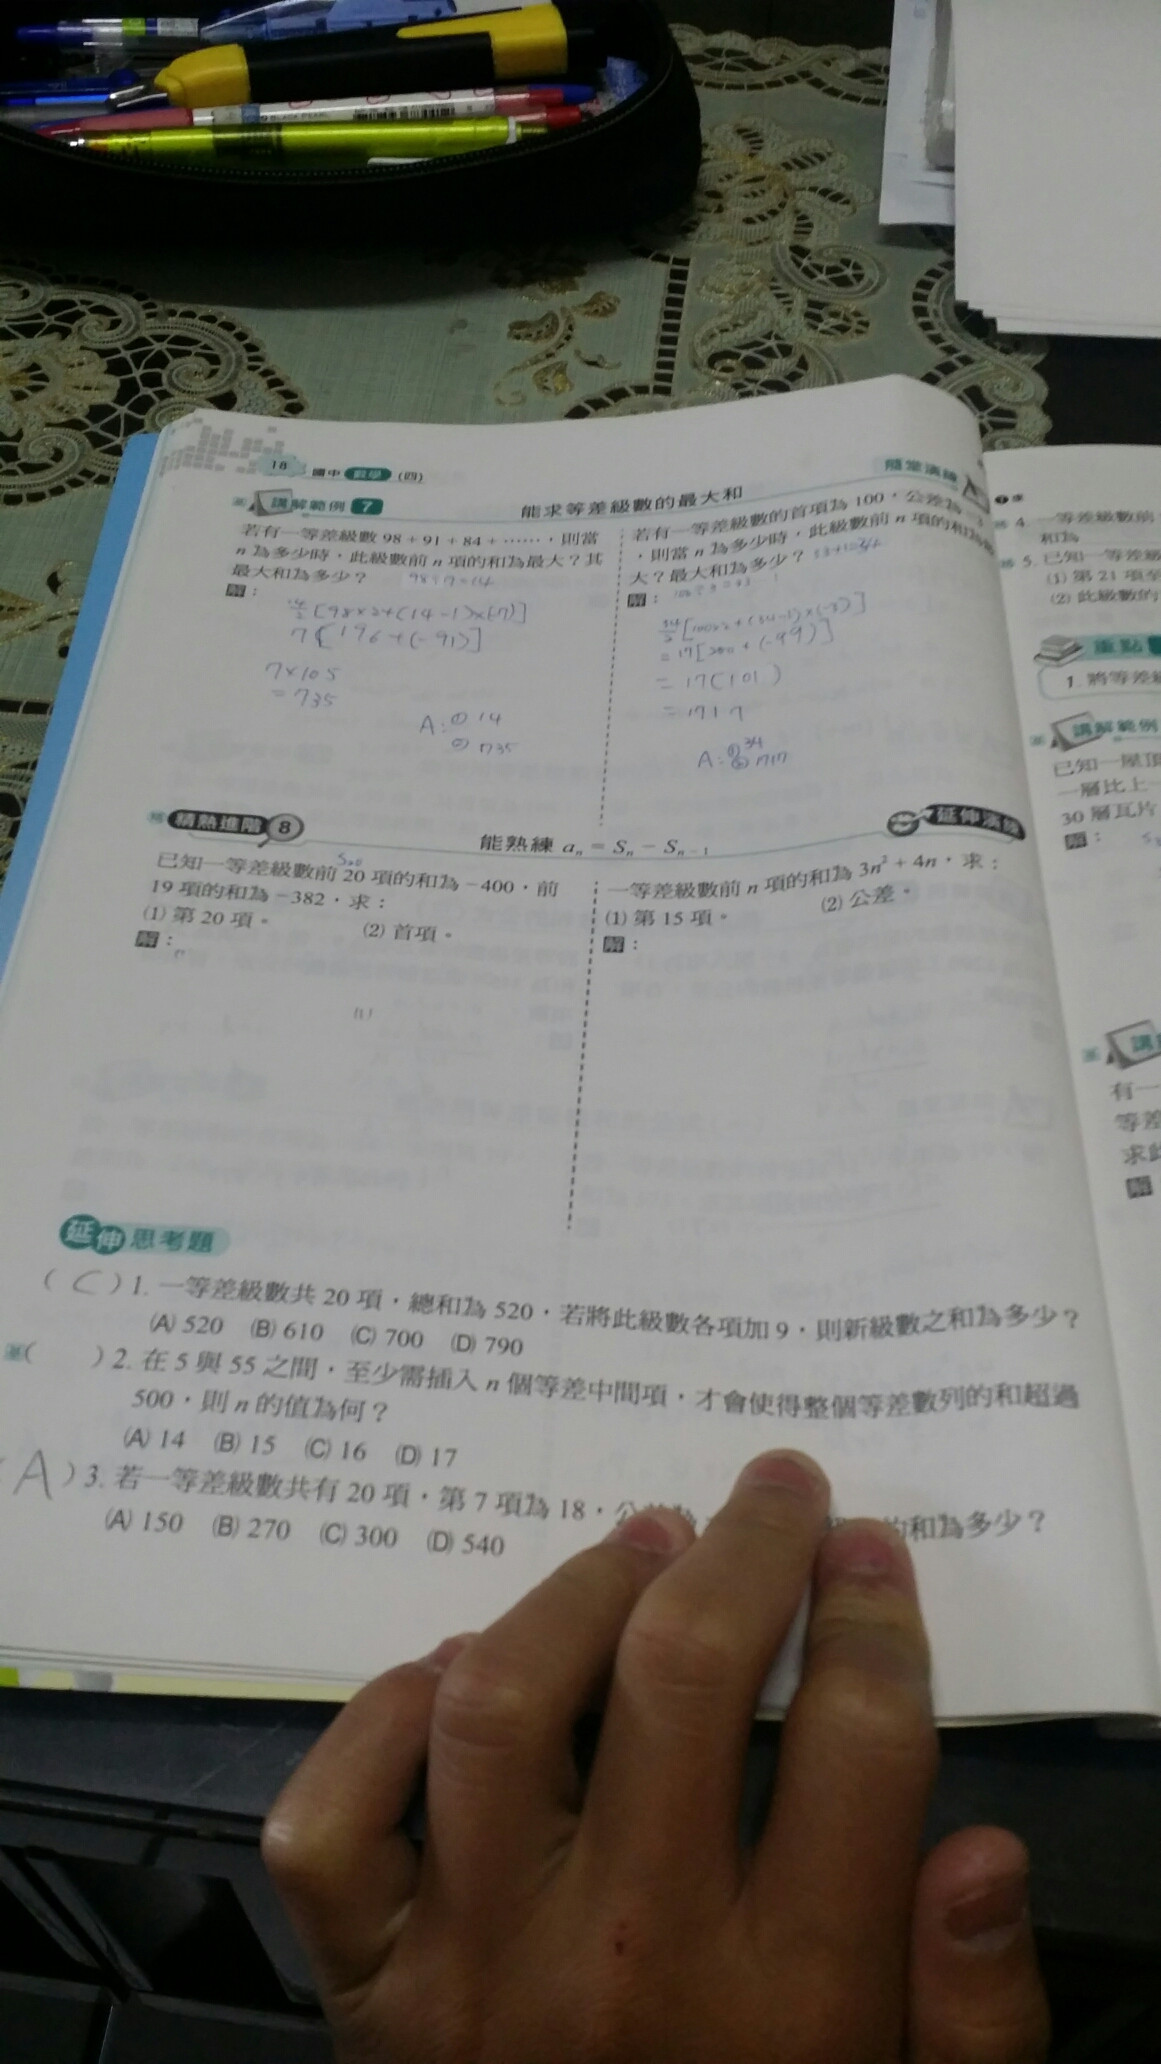 18 國中 數學 (四)
隨堂演練
講解範例 7 能求等差級數的最大和
若有一等差級數 98 + 91 + 84 + ……，則當
n 為多少時，此級數前 n 項的和為最大？其
最大和為多少？ 98÷7=14
解：
14/2 [98×2+(14-1)×(-7)]
7 [196+(-91)]
7×105
= 735
A: ① 14
② 735
若有一等差級數的首項為 100，公差為
，則當 n 為多少時，此級數前 n 項的和為最
大？最大和為多少？ 33+1=34
解：
34/2 [100×2+(34-1)×(-3)]
= 17[200+(-99)]
= 17(101)
= 1717
A: ① 34
② 1717
精熟進階 8 能熟練 aₙ = Sₙ − Sₙ₋₁ 延伸演練
S20
已知一等差級數前 20 項的和為 −400，前
19 項的和為 −382，求：
(1) 第 20 項。 (2) 首項。
解：
(1)
一等差級數前 n 項的和為 3n² + 4n，求：
(1) 第 15 項。 (2) 公差。
解：
延伸思考題
( C ) 1. 一等差級數共 20 項，總和為 520，若將此級數各項加 9，則新級數之和為多少？
(A) 520 (B) 610 (C) 700 (D) 790
( ) 2. 在 5 與 55 之間，至少需插入 n 個等差中間項，才會使得整個等差數列的和超過
500，則 n 的值為何？
(A) 14 (B) 15 (C) 16 (D) 17
( A ) 3. 若一等差級數共有 20 項，第 7 項為 18，公差為 的和為多少？
(A) 150 (B) 270 (C) 300 (D) 540
4. 一等差級數前
和為
5. 已知一等差級
(1) 第 21 項至
(2) 此級數的
重點
1. 將等差級
講解範例
已知一屋頂
一層比上一
30 層瓦片
解：
講
有一
等差
求此
解